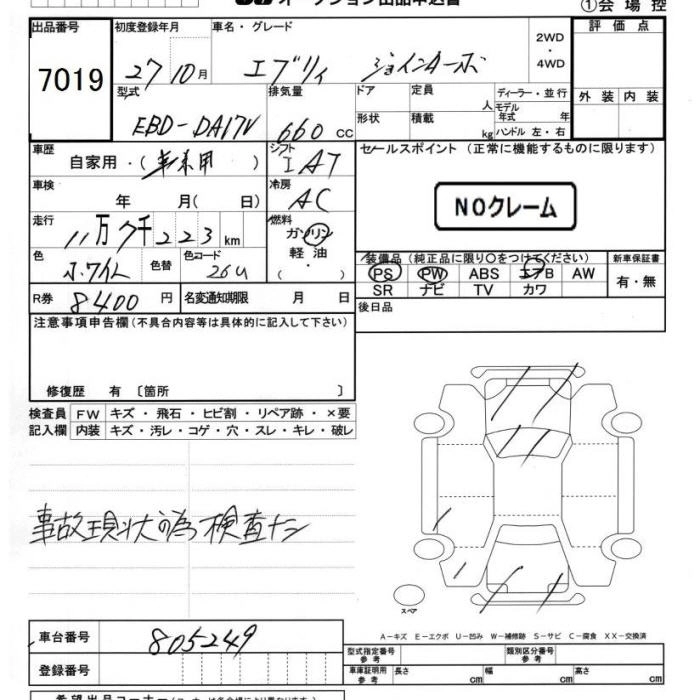 オークション出品申込書
①会場控
出品番号
7019
初度登録年月
27 10月
車名・グレード
エブリイ ジョインターボ
2WD
・
4WD
評価点
外装 内装
型式
EBD-DA17V
排気量
660 cc
ドア
定員
人
形状
積載
kg
ディーラー・並行
モデル
年式 年
ハンドル 左・右
車歴
自家用・( )
シフト
IAT
セールスポイント(正常に機能するものに限ります)
NOクレーム
車検
年 月( 日)
冷房
AC
走行
11万7千223km
燃料
ガソリン
軽油
( ・ )
色
ホワイト
色替
色コード
26U
装備品(純正品に限り○をつけてください)
PS PW ABS エアB AW
SR ナビ TV カワ
新車保証書
有・無
R券 8400円
名変通知期限 月 日
後日品
注意事項申告欄(不具合内容等は具体的に記入して下さい)
修復歴 有 〔箇所 〕
検査員
記入欄
FW キズ・飛石・ヒビ割・リペア跡・×要
内装 キズ・汚レ・コゲ・穴・スレ・キレ・破レ
事故現状の為検査ナシ
スペア
A-キズ E-エクボ U-凹み W-補修跡 S-サビ C-腐食 XX-交換済
車台番号 805249
登録番号
型式指定番号
参考
類別区分番号
参考
車庫証明用
参考
長さ cm 幅 cm 高さ cm
希望出品コーナー